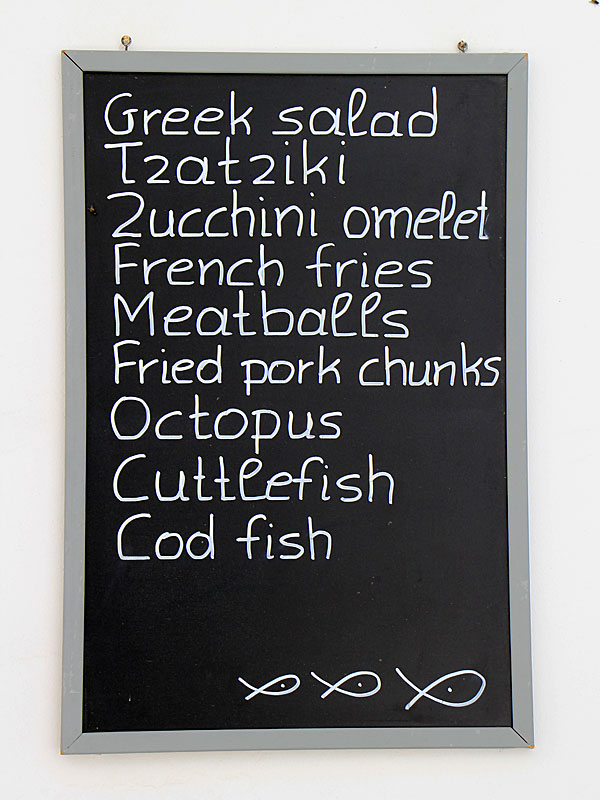 Greek salad
Tzatziki
Zucchini omelet
French fries
Meatballs
Fried pork chunks
Octopus
Cuttlefish
Cod fish